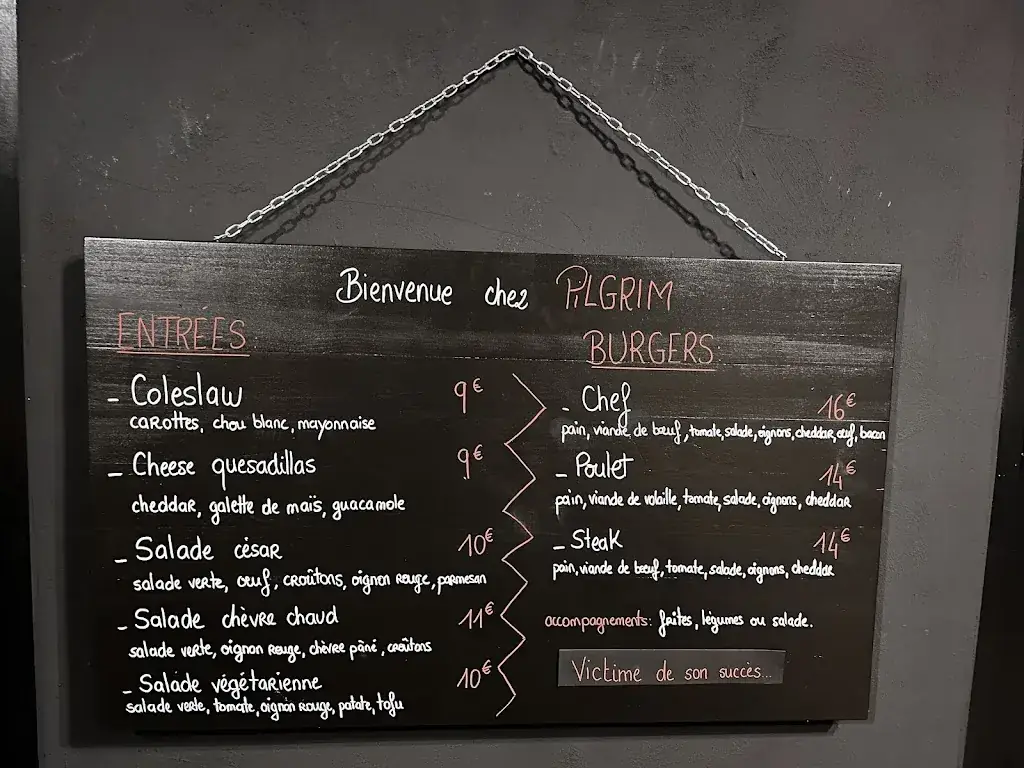 Bienvenue chez PILGRIM
ENTRÉES:
- Coleslaw 9€
carottes, chou blanc, mayonnaise
- Cheese quesadillas 9€
cheddar, galette de maïs, guacamole
- Salade césar 10€
salade verte, œuf, croûtons, oignon rouge, parmesan
- Salade chèvre chaud 11€
salade verte, oignon rouge, chèvre pâné, croûtons
- Salade végétarienne 10€
salade verte, tomate, oignon rouge, patate, tofu
BURGERS:
- Chef 16€
pain, viande de bœuf, tomate, salade, oignons, cheddar, œuf, bacon
- Poulet 14€
pain, viande de volaille, tomate, salade, oignons, cheddar
- Steak 14€
pain, viande de bœuf, tomate, salade, oignons, cheddar
accompagnements: frites, légumes ou salade.
Victime de son succès...